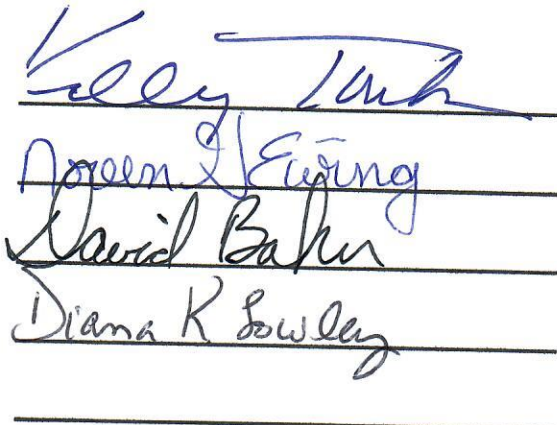 Kelly
Noreen Ewing
David Baker
Diana K Lowley